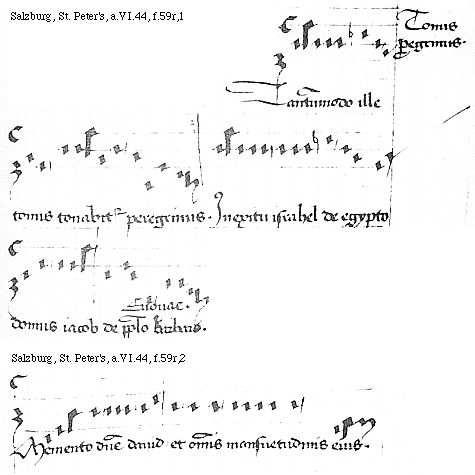 Salzburg, St. Peter's, a.VI.44, f.59r,1
Tonus
peregrinus.
Tantummodo ille
tonus tonabitr peregrinus. In exitu israhel de egypto
Euouae.
domus iacob de pplo
Salzburg, St. Peter's, a.VI.44, f.59r,2
Memento dne dauid et omnis mansuetudinis eius.